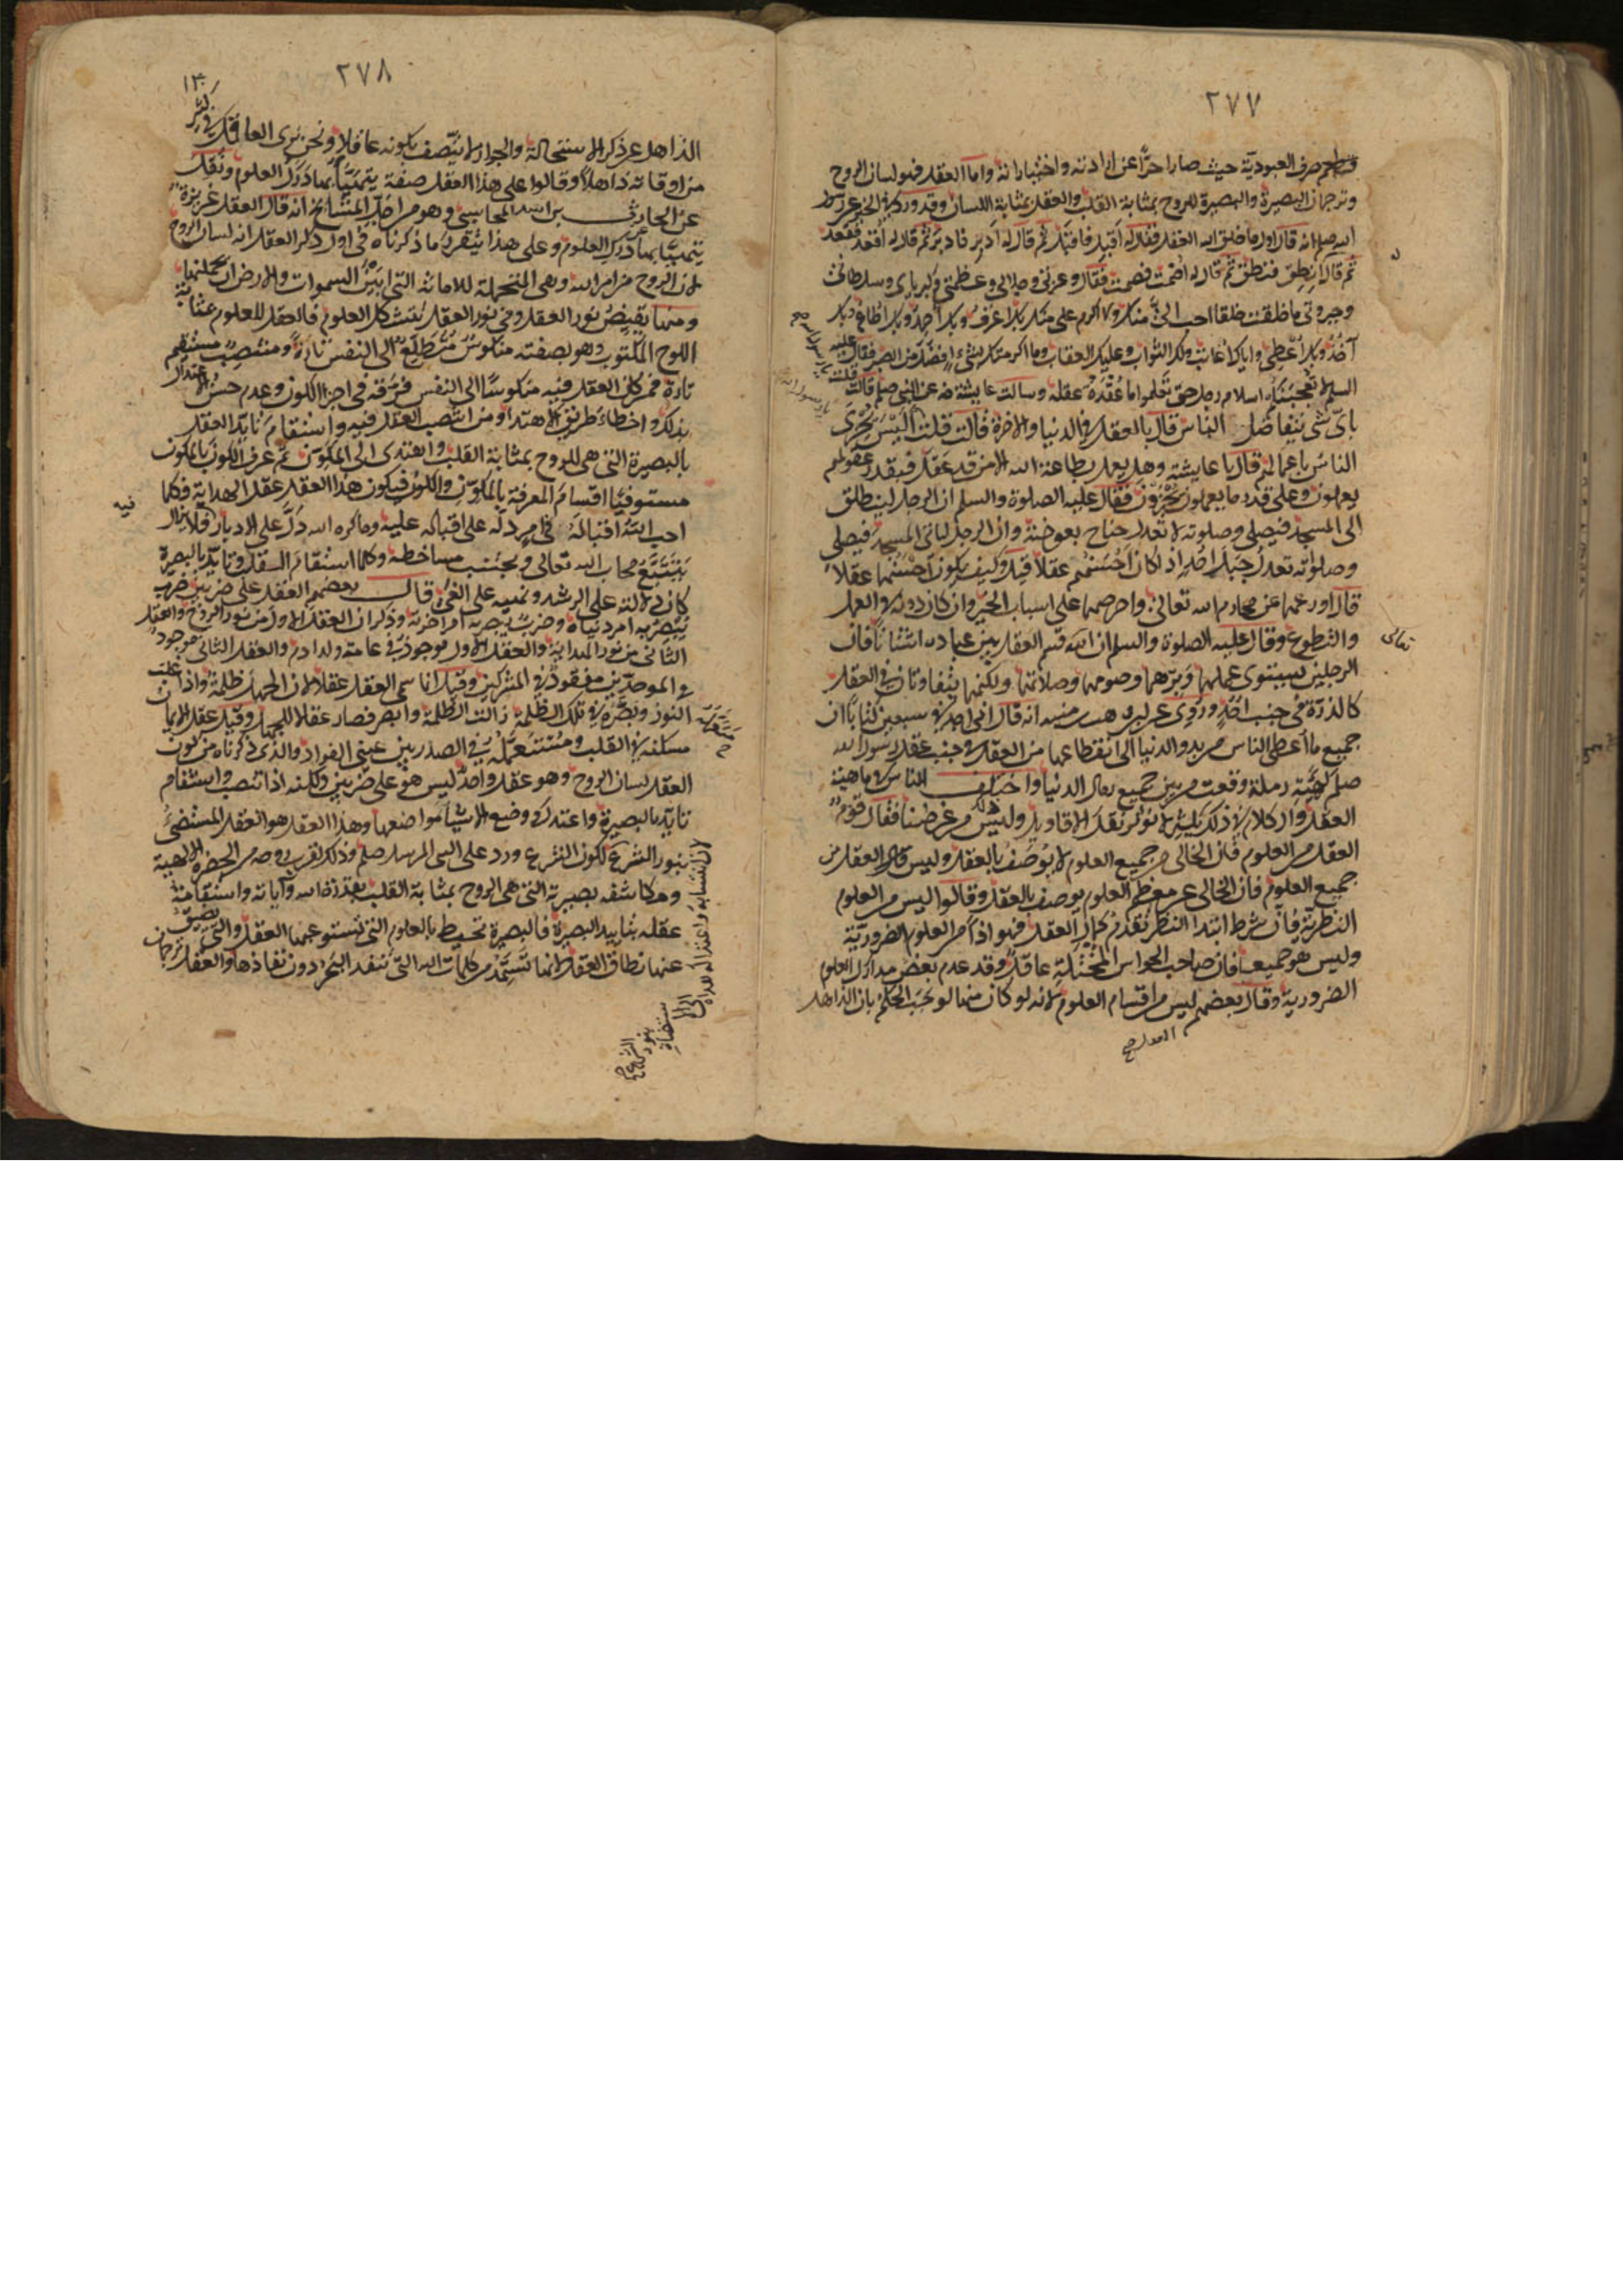 ٢٧٧
وطعم صرف العبودية حيث صار حرا عن ارادته واختياراته واما العقل فهو لسان الروح
وترجمان البصيرة والبصيرة للروح بمثابة القلب والعقل بمثابة اللسان وقد ورد في الخبر عن رسول
الله صلم انه قال اول ما خلق الله العقل فقال له اقبل فاقبل ثم قال له ادبر فادبر ثم قال له اقعد فقعد
ثم قال له انطق فنطق ثم قال له اصمت فصمت فقال وعزتي وجلالي وعظمتي وكبريائي وسلطاني
وجبروتي ما خلقت خلقا احب الي منك ولا اكرم علي منك بك اعرف وبك احمد وبك اطاع وبك
آخذ وبك اعطي واياك اعاتب ولك الثواب وعليك العقاب وما اكرمتك بشيء افضل من الصبر فقال عليه
السلام لا يعجبنكم اسلام رجل حتى تعلموا ما عقدة عقله وسالت عايشة رضه عن النبي صلم قالت قلت
باي شي يتفاضل الناس قال بالعقل في الدنيا والاخرة قالت قلت اليس يجزى
الناس باعمالهم قال يا عايشة وهل يعمل بطاعة الله الا من قد عقل فبقدر عقولهم
يعملون وعلى قدر ما يعملون يجزون فقال عليه الصلوة والسلم ان الرجل لينطلق
الى المسجد فيصلي وصلوته لا تعدل جناح بعوضة وان الرجل لياتي المسجد فيصلي
وصلوته تعدل جبل احد اذا كان احسنهم عقلا قيل وكيف يكون احسنهما عقلا
قال اورعهما عن محارم الله تعالى واحرصهما على اسباب الخير وان كان دونه في العمل
والتطوع وقال عليه الصلوة والسلم ان الله قسم العقل بين عباده اشتاتا فان
الرجلين يستوي عملهما وبرهما وصومهما وصلاتهما ولكنهما يتفاوتان في العقل
كالذرة في جنب احد وروي عن وهب بن منبه انه قال اني اجد في سبعين كتابا ان
جميع ما اعطي الناس من بدو الدنيا الى انقطاعها من العقل في جنب عقل رسول الله
صلم كهيئة رملة وقعت من بين جميع رمال الدنيا واختلف الناس في ماهية
العقل والكلام في ذلك يكثر لا نوثر نقل الاقاويل وليس ذلك من غرضنا فقال قوم
العقل من العلوم فان الخالي من جميع العلوم لا يوصف بالعقل وليس العقل من
جميع العلوم فان الخالي عن معظم العلوم يوصف بالعقل وقالوا ليس من العلوم
النظرية فان شرط ابتدا النظر تقدم كمال العقل فهو اذا من العلوم الضرورية
وليس هو جميعها فان صاحب الحواس المختلة عاقل وقد عدم بعض مدارك العلوم
الضرورية وقال بعضهم ليس من اقسام العلوم لانه لو كان منها لوجب الحكم بان الذاهل
تعالى
٢٧٨
١٣٠
الذاهل عن ذكر الاستحالة والجواز لا يتصف بكونه عاقلا ونحن نرى العاقل في كثير
من اوقاته ذاهلا وقالوا على هذا العقل صفة يتهيأ بها درك العلوم ونقل
عن الحارث بن اسد المحاسبي وهو من اجل المشايخ انه قال العقل غريزة
يتهيأ بها درك العلوم وعلى هذا يتقرر ما ذكرناه في اول ذكر العقل انه لسان الروح
لان الروح من امر الله وهي المتحملة للامانة التي ابين السموات والارض ان يحملنها
ومنها يفيض نور العقل وفي نور العقل تتشكل العلوم فالعقل للعلوم بمثابة
اللوح المكتوب وهو بصفته منكوس متطلع الى النفس تارة ومنتصب مستقيم
تارة فمن كان العقل فيه منكوسا الى النفس فرقه في اجزا الكون وعدم حسن الاعتدال
بذلك واخطاء طريق الاهتدا ومن انتصب العقل فيه واستقام تايد العقل
بالبصيرة التي هي للروح بمثابة القلب واهتدى الى المكون ثم عرف الكون بالمكون
مستوفيا اقسام المعرفة بالمكون والكون فيكون هذا العقل عقل الهداية فكما
احب الله اقباله في امر دله على اقباله عليه وما كره الله دل على الادبار فلا يزال
يتتبع محاب الله تعالى ويجتنب مساخطه وكلما استقام العقل وتايد بالبصيرة
كان دلالته على الرشد ونهيه على الغي قال بعضهم العقل على ضربين ضرب
يبصر به امر دنياه وضرب يبصر به امر اخرته وذكر ان العقل الاول من نور الروح والعقل
الثاني من نور الهداية والعقل الاول موجود في عامة ولد ادم والعقل الثاني موجود
في الموحدين مفقود في المشركين وقيل انما سمي العقل عقلا لان الجهل ظلمة واذا غلب
النور وبصره في تلك الظلمة زالت الظلمة وابصر فصار عقلا للجهل وقيل عقل الايمان
مسكنه في القلب ومستعمله في الصدر بين عيني الفواد والذي ذكرناه من كون
العقل لسان الروح وهو عقل واحد ليس هو على ضربين ولكنه اذا انتصب واستقام
تايد بالبصيرة واعتدل ووضع الاشيا مواضعها وهذا العقل هو العقل المستضي
بنور الشرع لكون الشرع ورد على لسان النبي المرسل صلم وذلك لقرب روحه من الحضرة الالهية
ومكاشفة بصيرته التي هي الروح بمثابة القلب بقدرة الله وآياته واستقامة
عقله بتاييد البصيرة فالبصيرة تحيط بالعلوم التي يستوعبها العقل والتي يضيق
عنها نطاق العقل لانها تستمد من كلمات الله التي ينفد البحر دون نفادها والعقل ترجمان
فيه
لان انتصابه واعتداله هداه الى
الاستضاءة
بنور
الشرع